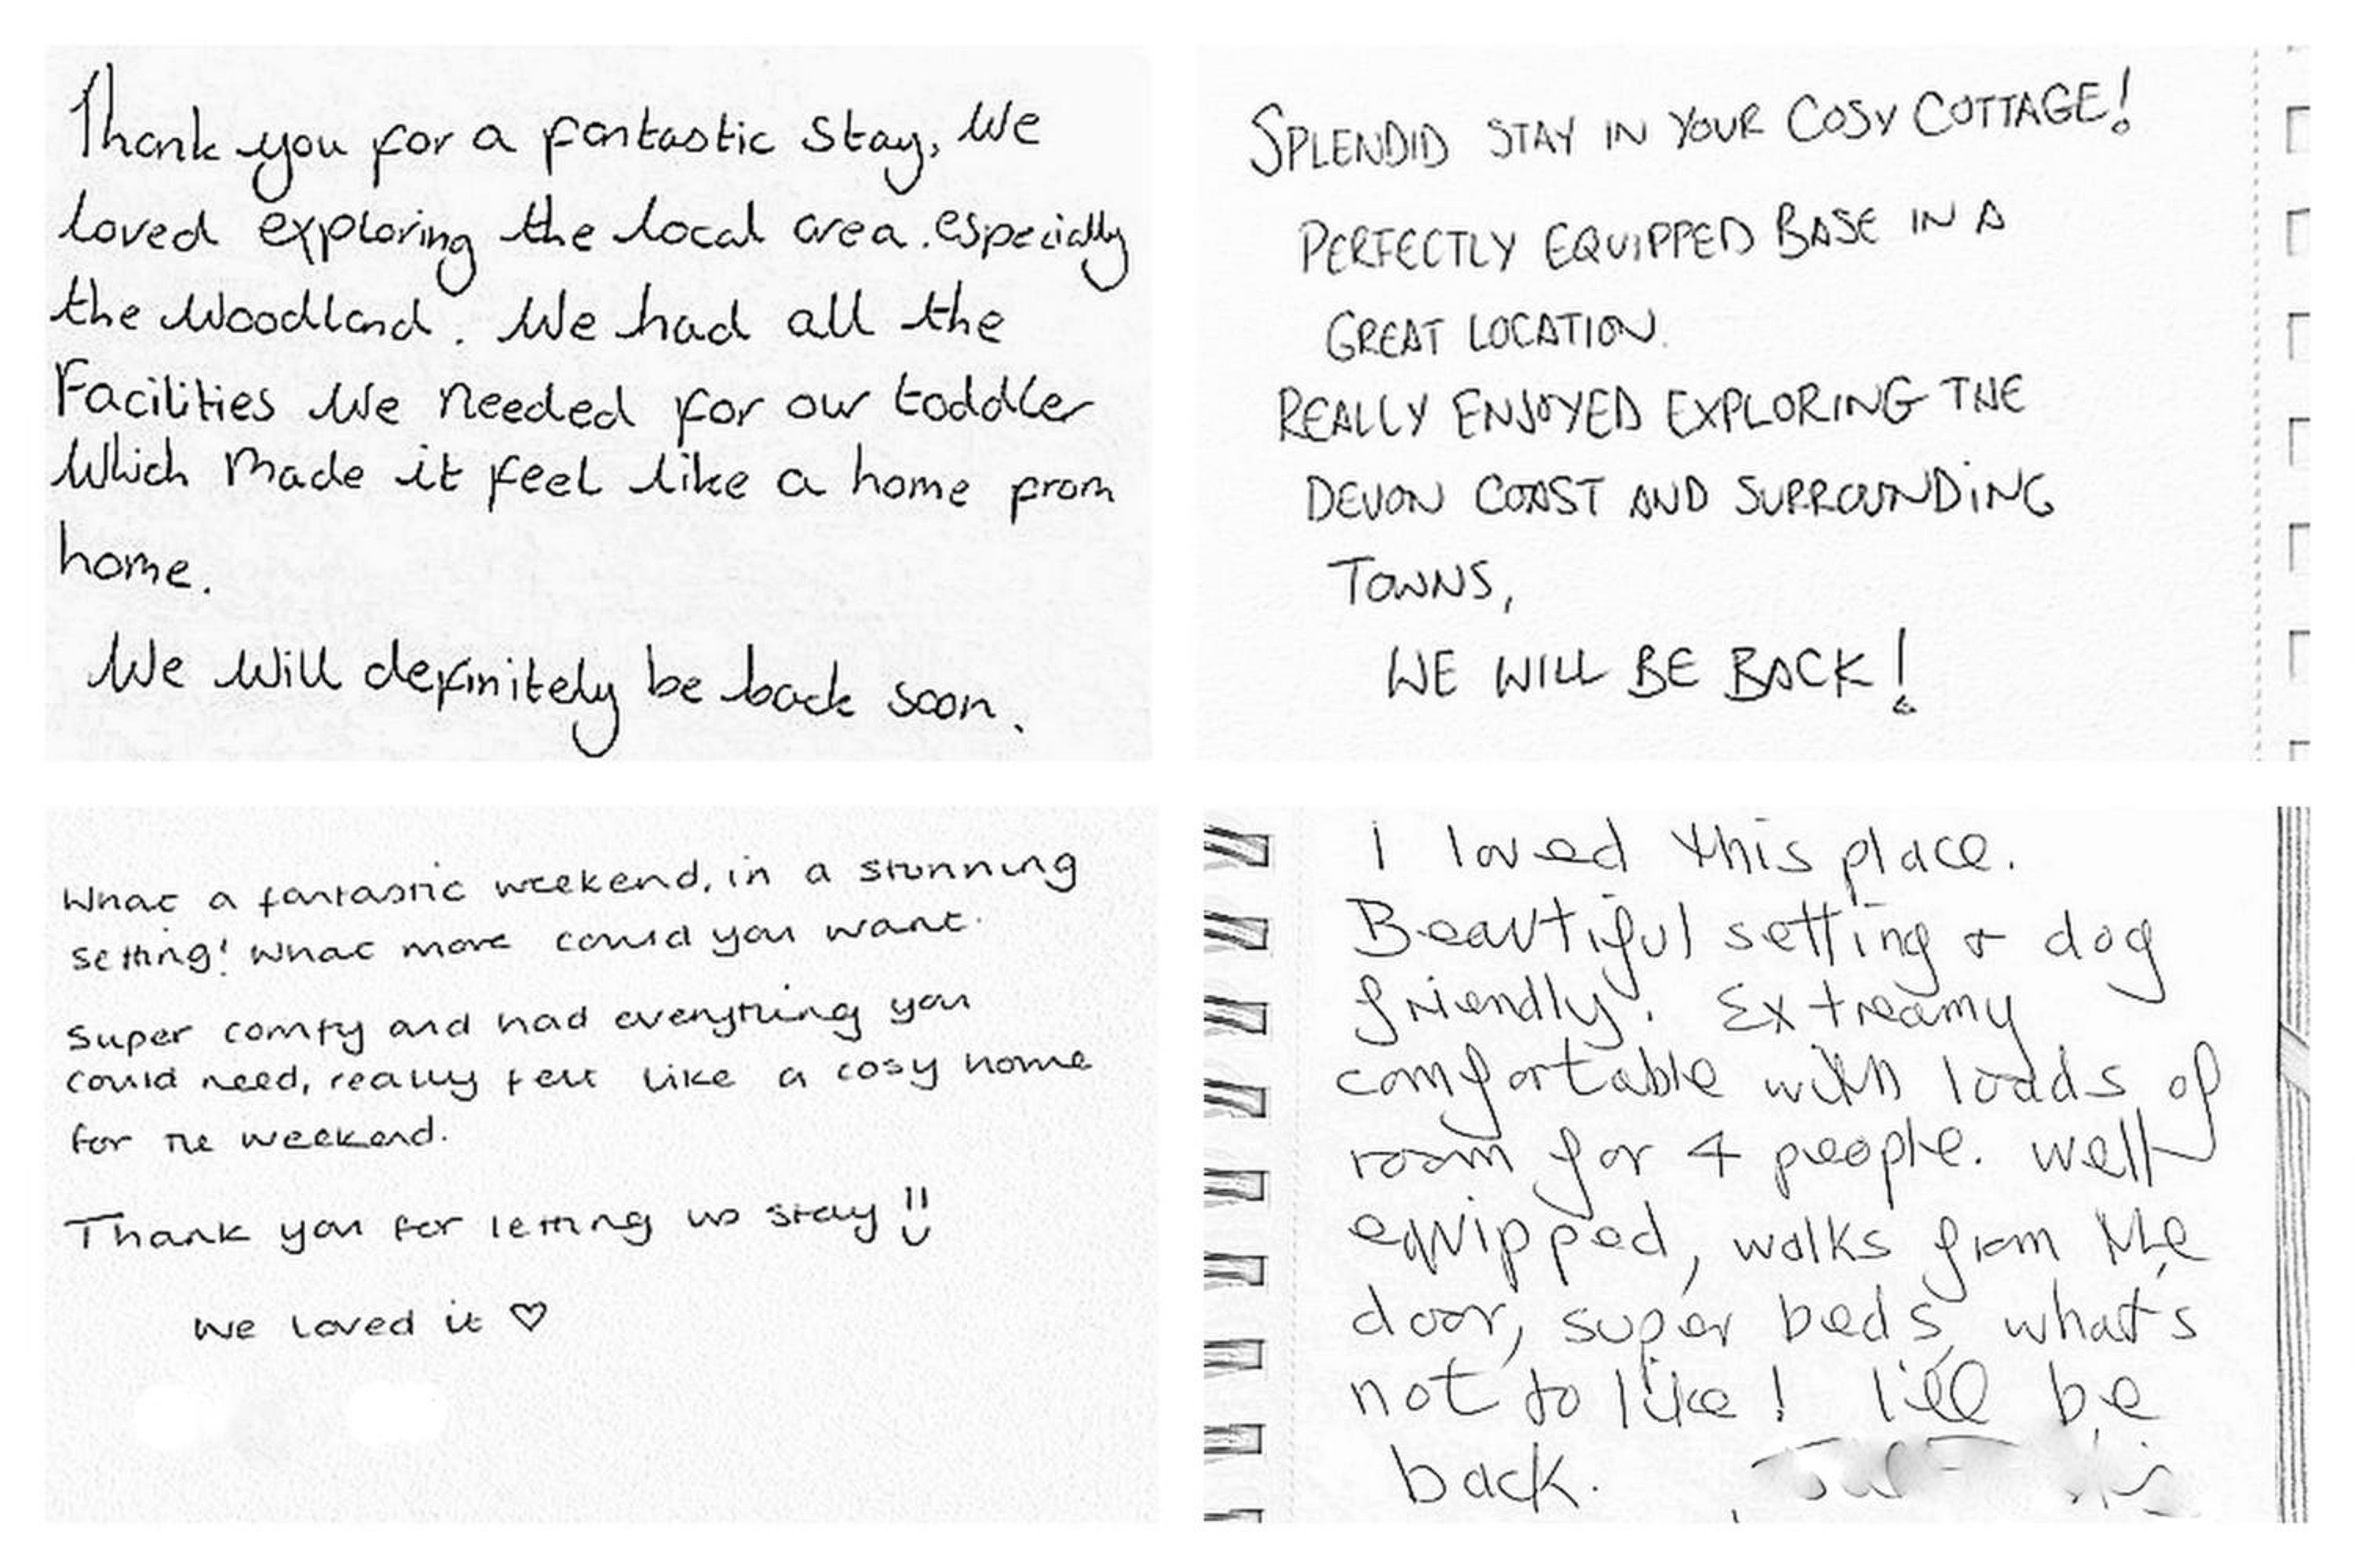 Thank you for a fantastic stay, We
loved exploring the local area. especially
the Woodland. We had all the
Facilities We needed for our toddler
Which Made it feel like a home from
home.
We Will definitely be back soon.
SPLENDID STAY IN YOUR COSY COTTAGE!
PERFECTLY EQUIPPED BASE IN A
GREAT LOCATION.
REALLY ENJOYED EXPLORING THE
DEVON COAST AND SURROUNDING
TOWNS,
WE WILL BE BACK!
What a fantastic weekend, in a stunning
setting! What more could you want.
Super comfy and had everything you
could need, really felt like a cosy home
for the weekend.
Thank you for letting us stay !!
We loved it ♡
I loved this place.
Beautiful setting & dog
friendly. Extreamy
comfortable with loads of
room for 4 people. Well
equipped, walks from the
door, super beds, what's
not to like! I'll be
back.